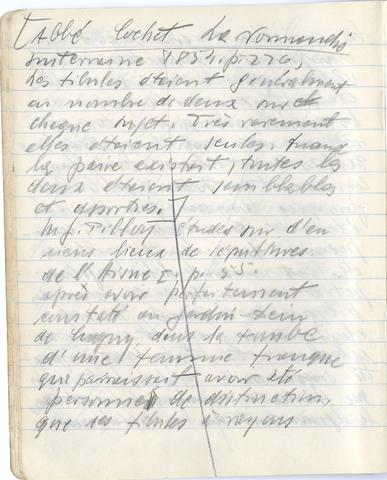 [Abbé Cochet La Normandie
souterraine 1854. p. 276,
Les fibules étaient généralement
au nombre de deux sur
chaque sujet. Très rarement
elles étaient seules. Quand
la paire existait, toutes les
deux étaient semblables
et assorties.]
M. J. Pilloy Études sur d'an
ciens lieux de sépultures
de l'Aisne I. p. 55.
après avoir parfaitement
constaté au
de Lugny, dans la tombe
d'une femme franque
qui paraissait avoir été
personne de distinction,
que ses fibules à rayons